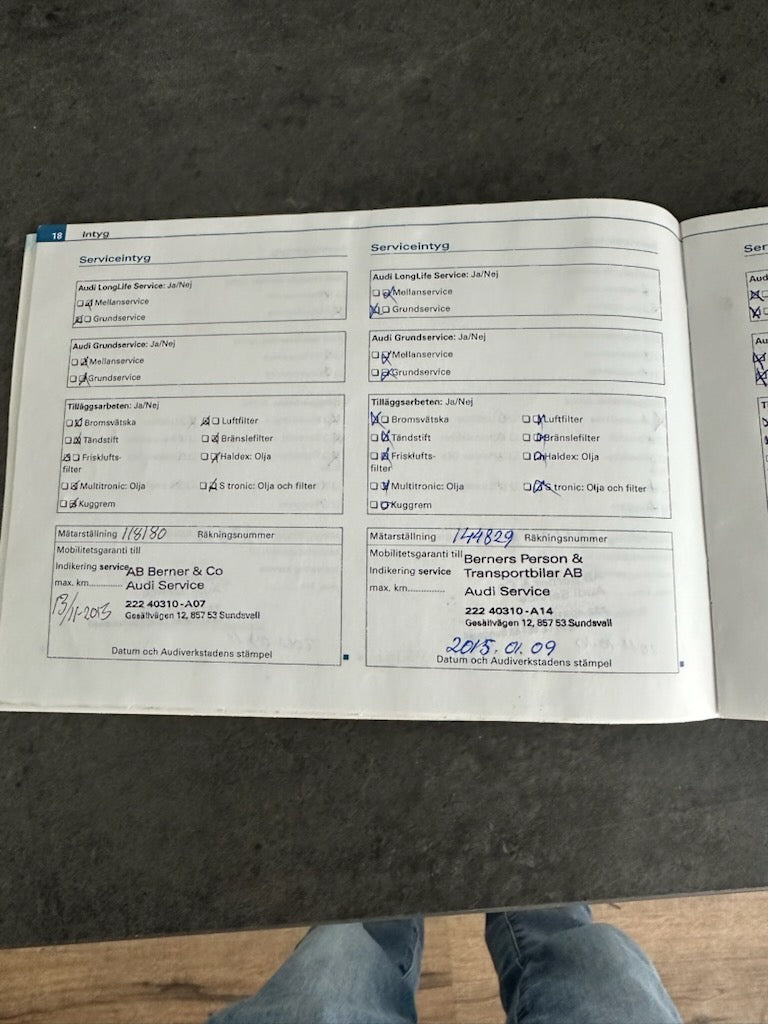 18 Intyg
Serviceintyg
Audi LongLife Service: Ja/Nej
Mellanservice
Grundservice
Audi Grundservice: Ja/Nej
Mellanservice
Grundservice
Tilläggsarbeten: Ja/Nej
Bromsvätska Luftfilter
Tändstift Bränslefilter
Frisklufts- Haldex: Olja
filter
Multitronic: Olja S tronic: Olja och filter
Kuggrem
Mätarställning 118180 Räkningsnummer
Mobilitetsgaranti till
Indikering service AB Berner & Co
max. km.............. Audi Service
13/11-2013 222 40310-A07
Gesällvägen 12, 857 53 Sundsvall
Datum och Audiverkstadens stämpel
Serviceintyg
Audi LongLife Service: Ja/Nej
Mellanservice
Grundservice
Audi Grundservice: Ja/Nej
Mellanservice
Grundservice
Tilläggsarbeten: Ja/Nej
Bromsvätska Luftfilter
Tändstift Bränslefilter
Frisklufts- Haldex: Olja
filter
Multitronic: Olja S tronic: Olja och filter
Kuggrem
Mätarställning 144829 Räkningsnummer
Mobilitetsgaranti till Berners Person &
Indikering service Transportbilar AB
max. km.............. Audi Service
222 40310-A14
Gesällvägen 12, 857 53 Sundsvall
2015.01.09
Datum och Audiverkstadens stämpel
Ser
Aud
Au
T